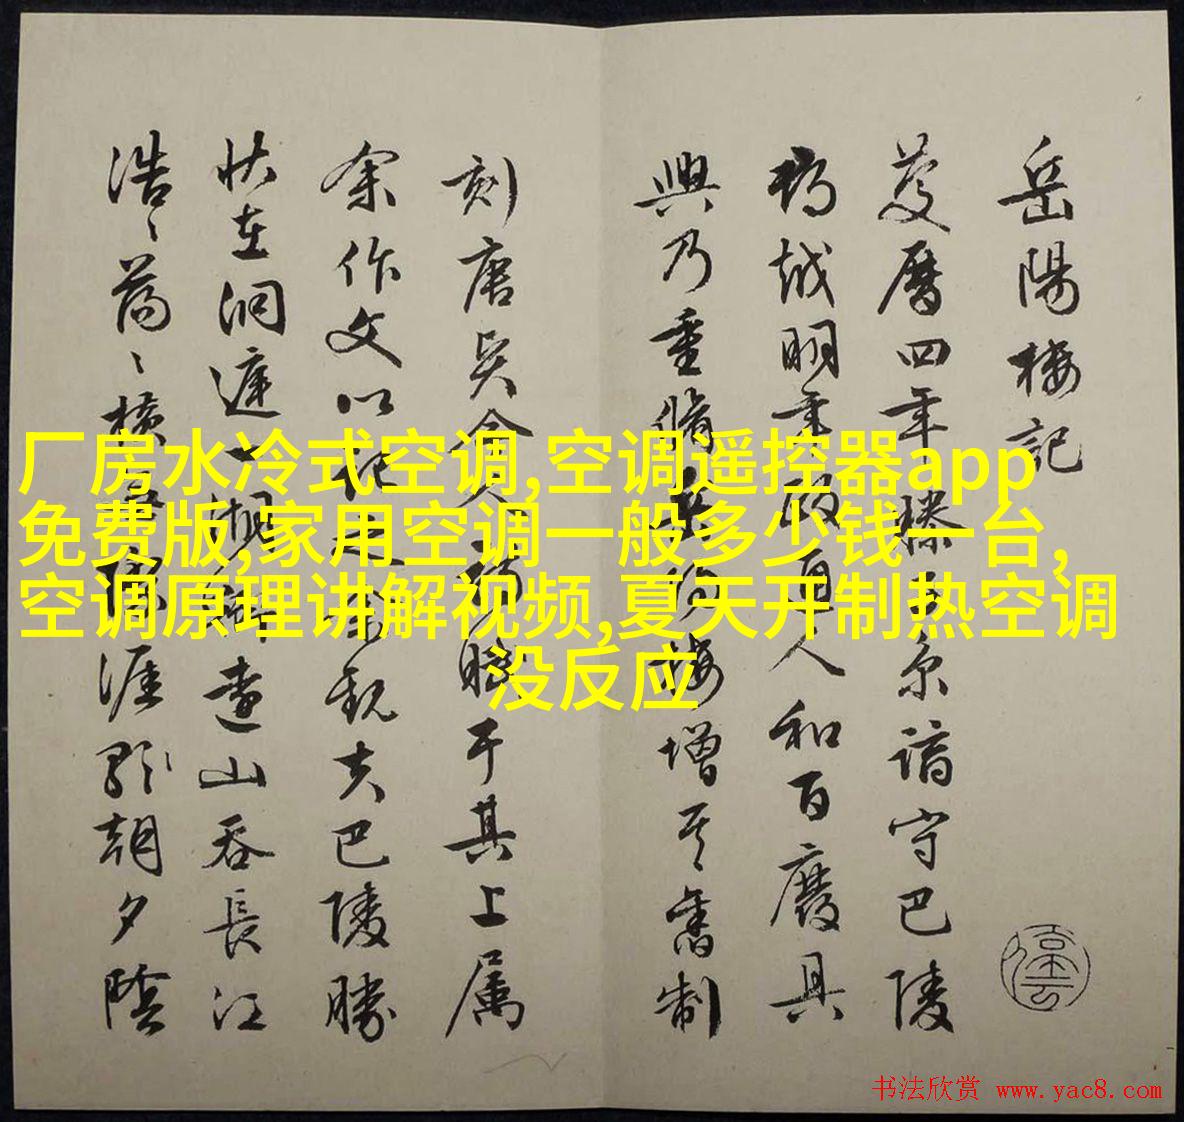 岳陽樓記
慶曆四年滕子京謫守巴陵
郡越明年政通人和百廢具
興乃重脩岳陽樓增其舊制
刻唐賢今人詩賦于其上属
余作文以記之予觀夫巴陵勝
狀在洞庭一湖銜遠山吞長江
浩〻蕩〻橫無際涯朝夕陰
厂房水冷式空调,空调遥控器app
免费版,家用空调一般多少钱一台,
空调原理讲解视频,夏天开制热空调
没反应
书法欣赏 www.yac8.com